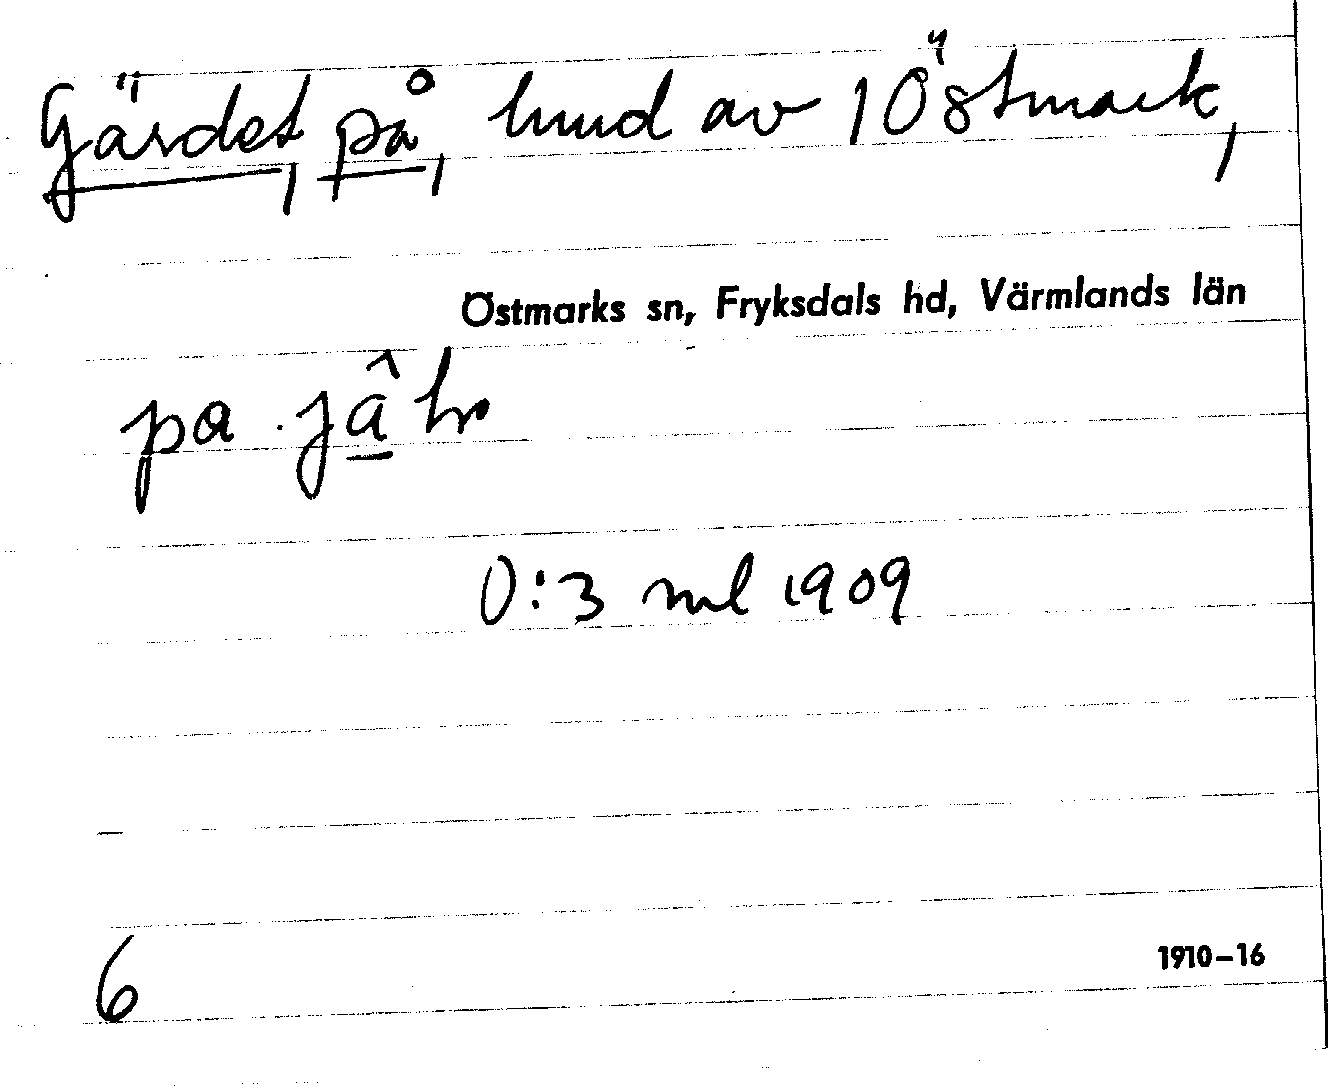 Gärdet, på, hmd av 1 Östmark,
Östmarks sn, Fryksdals hd, Värmlands län
pa jâ̱
O:3 ml 1909
6
1910–16